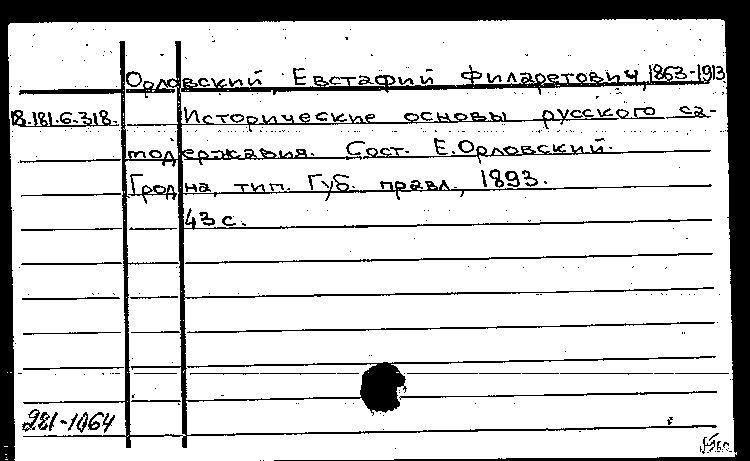 Орловский, Евстафий Филаретович, 1863-1913
18.181.6.318. Исторические основы русского са-
модержавия. Сост. Е.Орловский.
Гродна, тип. Губ. правл., 1893.
43 с.
281-1064